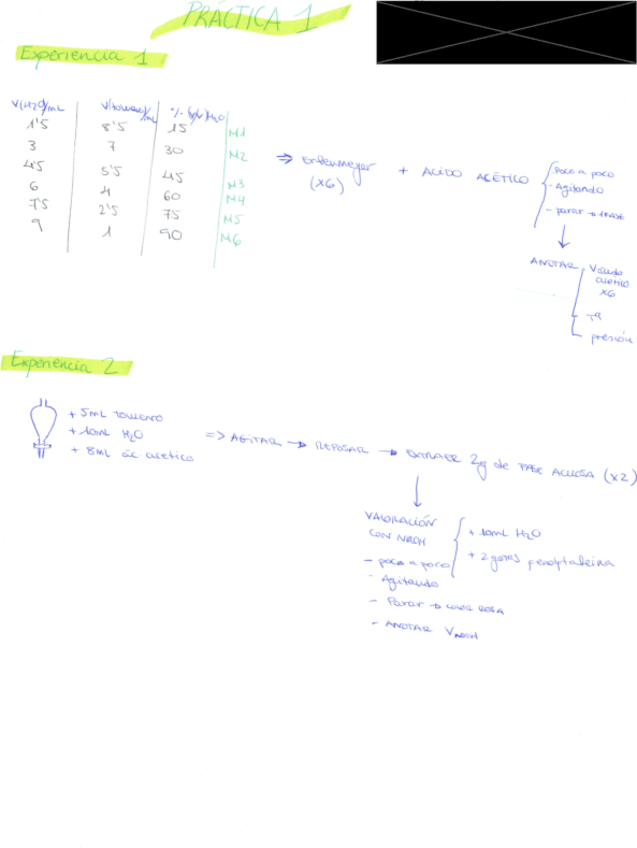 PRÁCTICA 1
Experiencia 1
V(H2O)/mL V(tolueno)/mL % (v/v) H2O
1'5 8'5 15 M1
3 7 30 M2
4'5 5'5 45 M3
6 4 60 M4
7'5 2'5 75 M5
9 1 90 M6
⇒ Erlenmeyer (x6) + ÁCIDO ACÉTICO
Poco a poco
- Agitando
- parar → 1 FASE
↓
ANOTAR
Vácido acético x6
Tª
presión
Experiencia 2
+ 5mL tolueno
+ 10mL H2O
+ 8mL ác acético
=> AGITAR → REPOSAR → EXTRAER 2g de FASE ACUOSA (x2)
↓
VALORACIÓN CON NaOH
+ 10mL H2O
+ 2 gotas fenolftaleina
- poco a poco
- Agitando
- Parar → color ROSA
- ANOTAR VNaOH